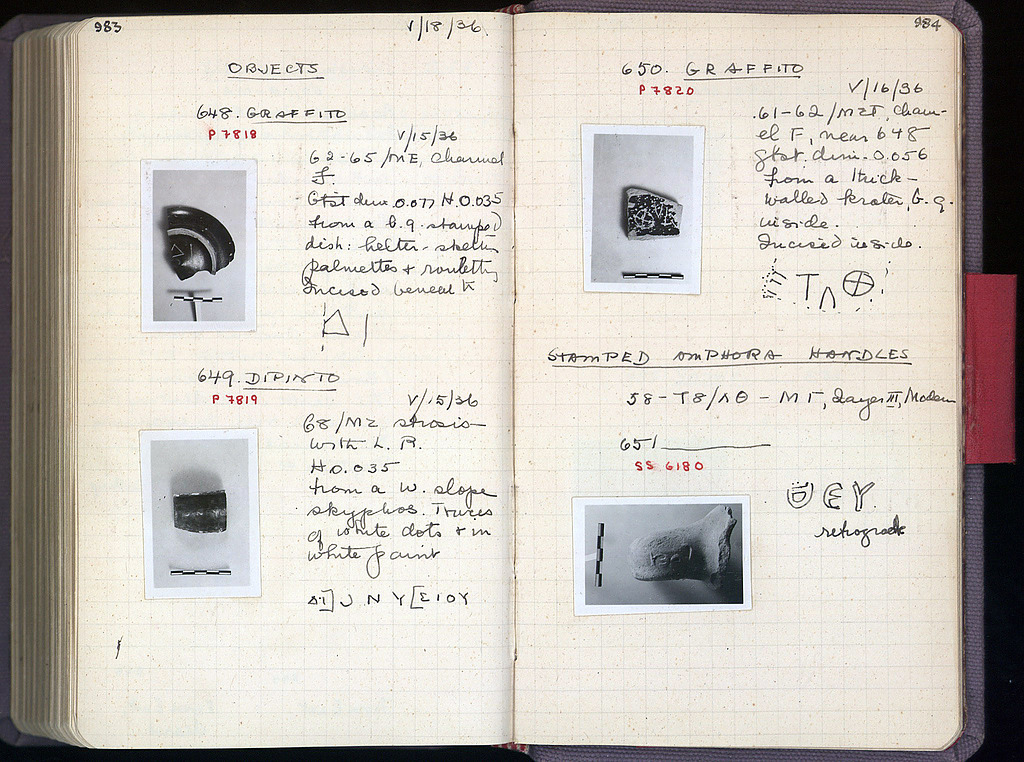 983
V/18/36
OBJECTS
648. GRAFFITO
P 7818
V/15/36
62-65/ME, channel
F.
Gtst dim 0.077 H 0.035
from a b.g. stamped
dish: helter-skelter
palmettes + rouletting
Incised beneath
Δ |
649. DIPINTO
P 7819
V/15/36
68/MZ strosis
with L. R.
H 0.035
from a W. slope
skyphos. Traces
of white dots + in
white paint
ΔΙ]Ο Ν Υ[ΣΙΟΥ
984
650. GRAFFITO
P 7820
V/16/36
.61-62/MΣΤ, chann-
el F, near 648
gtst. dim. 0.056
from a thick-
walled krater, b.g.
inside.
Incised inside.
Τ Λ ⊕
STAMPED AMPHORA HANDLES
58-T8/ΛΘ - ΜΓ, Layer III, Modern
651
SS 6180
ΕΥ
retrograde